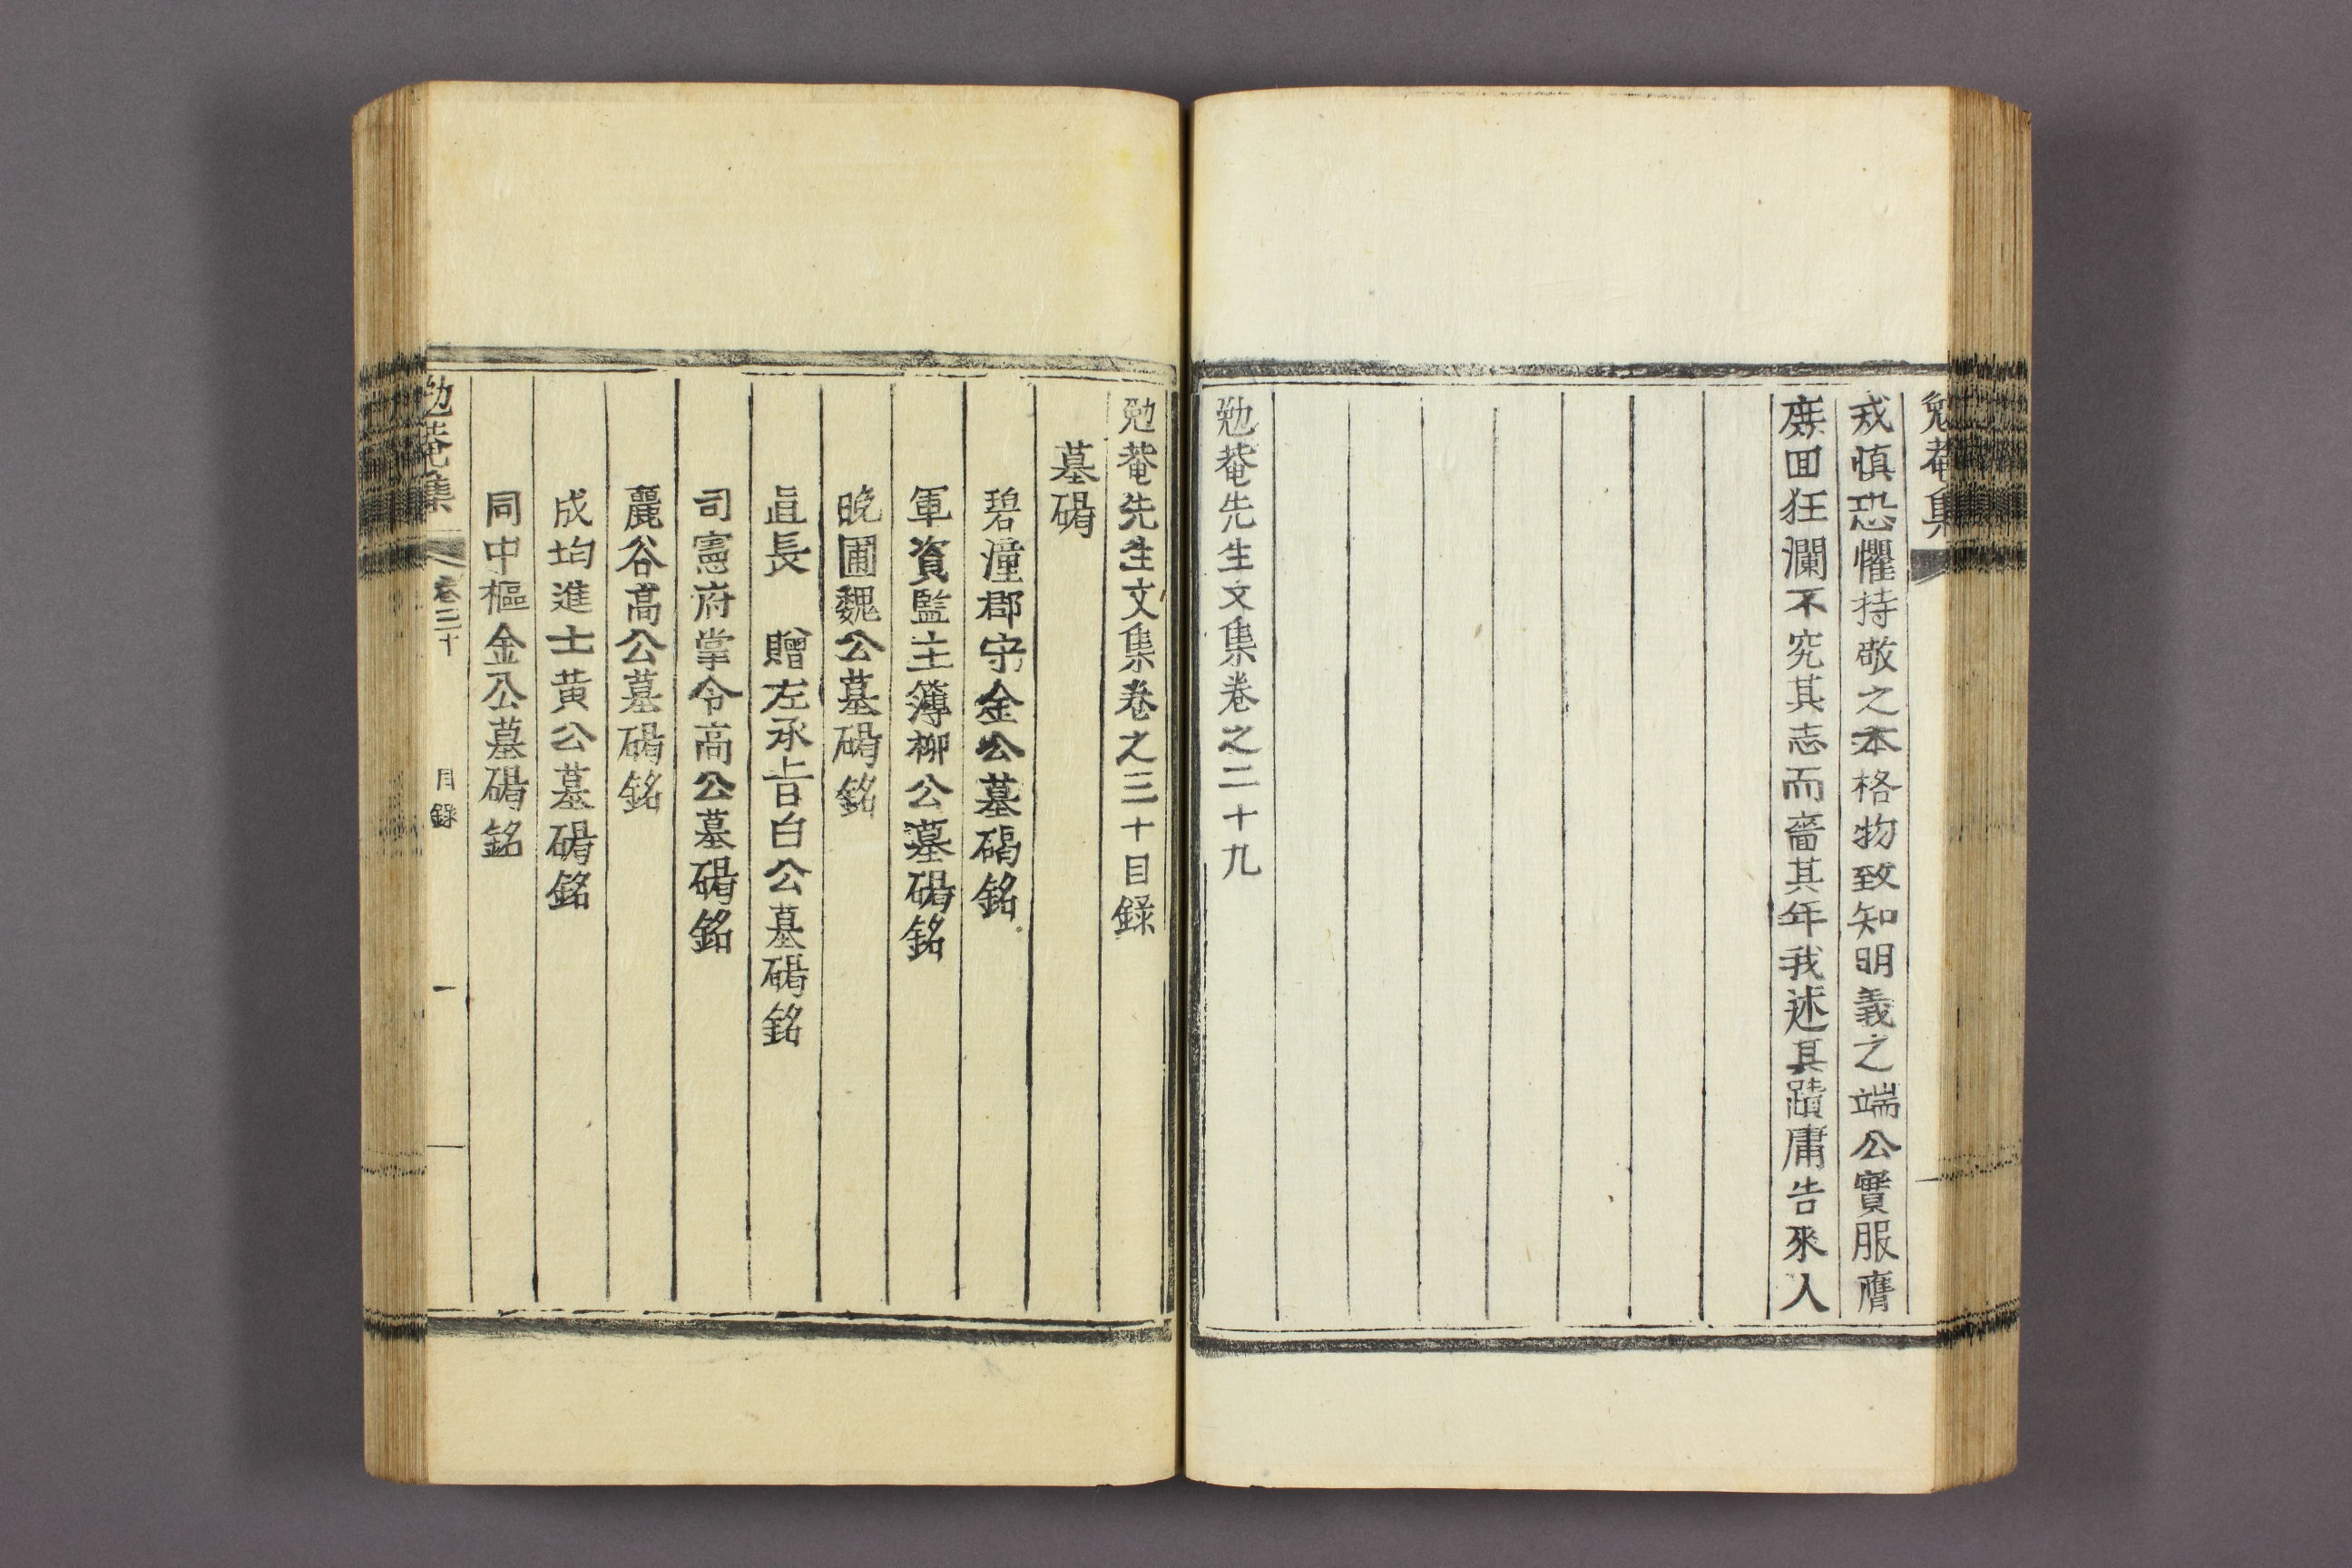 勉菴集
戒慎恐懼持敬之本格物致知明義之端公實服膺
庶回狂瀾不究其志而嗇其年我述其蹟庸告來人
勉菴先生文集卷之二十九
勉菴先生文集卷之三十目錄
墓碣
碧潼郡守金公墓碣銘
軍資監主簿柳公墓碣銘
晩圃魏公墓碣銘
直長　贈左承旨白公墓碣銘
司憲府掌令高公墓碣銘
麗谷高公墓碣銘
成均進士黃公墓碣銘
同中樞金公墓碣銘
勉菴集　卷三十　目錄　一